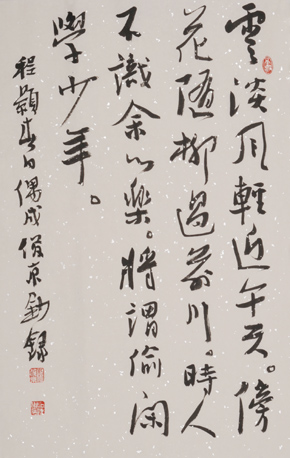 雲淡風輕近午天。傍
花隨柳過前川。時人
不識余心樂。將謂偷閑
學少年。
程顥春日偶成 俊京劍錄